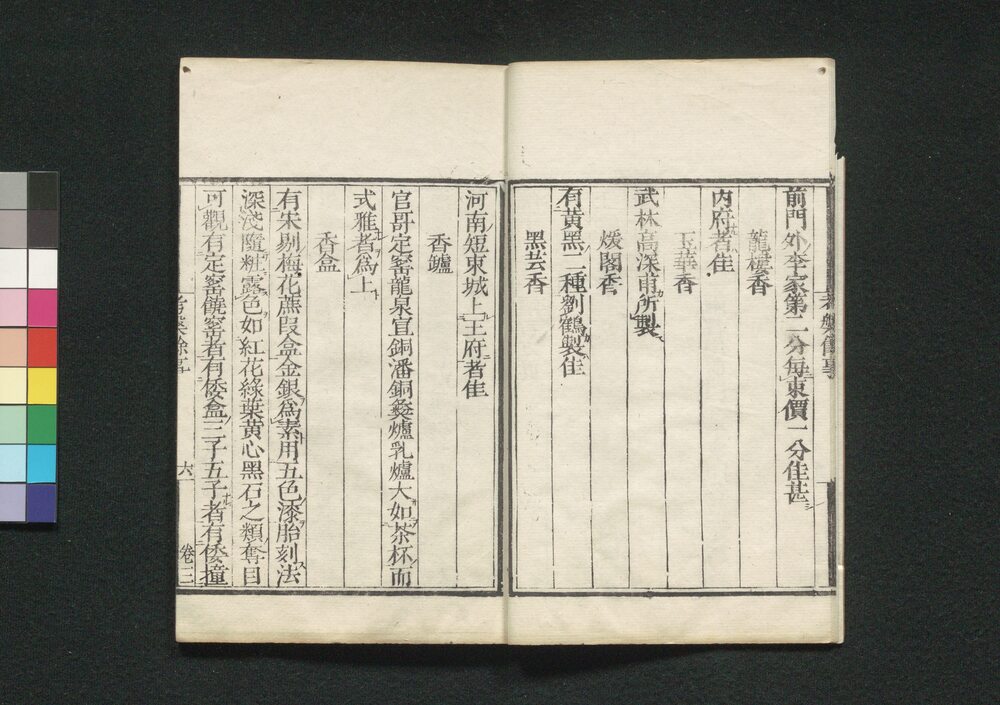 前門外李家第二分每束價一分佳甚
龍樓香
內府者佳
玉華香
武林高深甫所製
煖閣香
有黃黑二種劉鶴製佳
黑芸香
河南短束城上王府者佳
香鑪
官哥定窰龍泉宣銅潘銅彜爐乳爐大如茶杯而
式雅者為上
香盒
有宋剔梅花蔗段盒金銀為素用五色漆胎刻法
深淺隨粧露色如紅花綠葉黃心黑石之類奪目
可觀有定窰饒窰者有倭盒三子五子者有倭撞
六
卷三